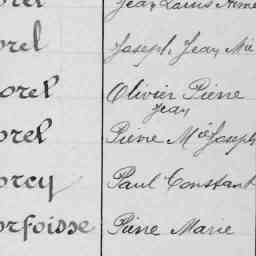 orel Jean Louis Aimé
orel Joseph Jean Mie
orel Olivier Pierre
Jean
orel Pierre Mie Joseph
orcy Paul Constant
orfoisse Pierre Marie